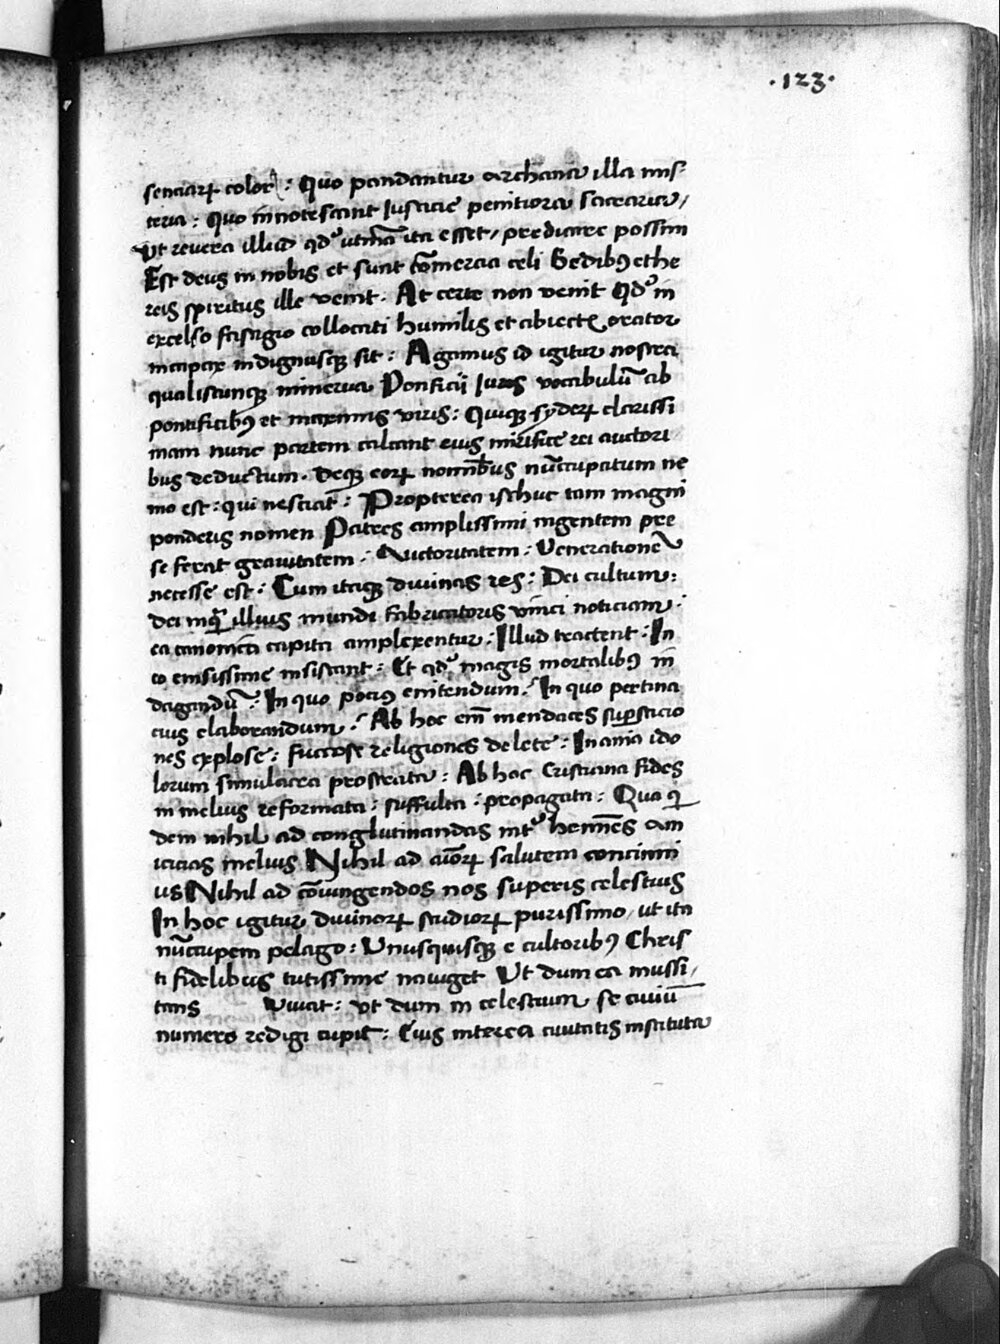 ·123·
senciaꝝ color : Quo pandantur archana illa mis-
teria : Quo innotescant Iusticie penitiora sacraria /
Ut revera illud qd' utinā ita esset / predicare possim
Est deus in nobis et sunt cōmercia celi Sedibꝰ ethe
reis spiritus ille venit . At certe non venit Qd' in
excelso fastigio collocati humilis et abiectꝰ orator
incapax indignusqꝫ sit : Agamus id igitur nostra
qualicunqꝫ minerva Pontificii Iuris vocabulū ab
pontificibꝰ et maximis viris : Quiqꝫ syderꝝ clarissi
mam nunc partem calcant eius mirifice rei auctori
bus deductum . deqꝫ eorꝝ nominibus nūcupatum ne
mo est : qui nesciat : Propterea isthuc tam magni
ponderis nomen Patres amplissimi ingentem pre
se ferat gravitatem : Auctoritatem : Venerationē
necesse est : Cum itaqꝫ divinas res : Dei cultum :
dei inqꝫ illius mundi fabricatoris vinci noticiam :
ea canonica capita amplexentur : Illud tractent : In
eo enixissime insistant : Et qd' magis mortalibꝰ in
dagandū : In quo pocius enitendum : In quo pertina
cius elaborandum : Ab hoc eīm mendaces supersticio
nes explose : fucose religiones delete : Inania ido
lorum simulacra prostrata : Ab hac Cristiana fides
in melius reformata : suffulta : propagata : Qua qi
dem nihil ad conglutinandas int' homines am
icicias melius Nihil ad aīoꝝ salutem concinni
us Nihil ad cōiungendos nos superis celestius
In hoc igitur divinorꝝ studiorꝝ purissimo / ut ita
nūcupem pelago : Unusquisqꝫ e cultoribꝰ Chris
ti fidelibus tutissime naviget Ut dum ea mussi /
tans vivat : ut dum in celestium se civiū
numero redigi cupit : Eius interea civitatis instituta